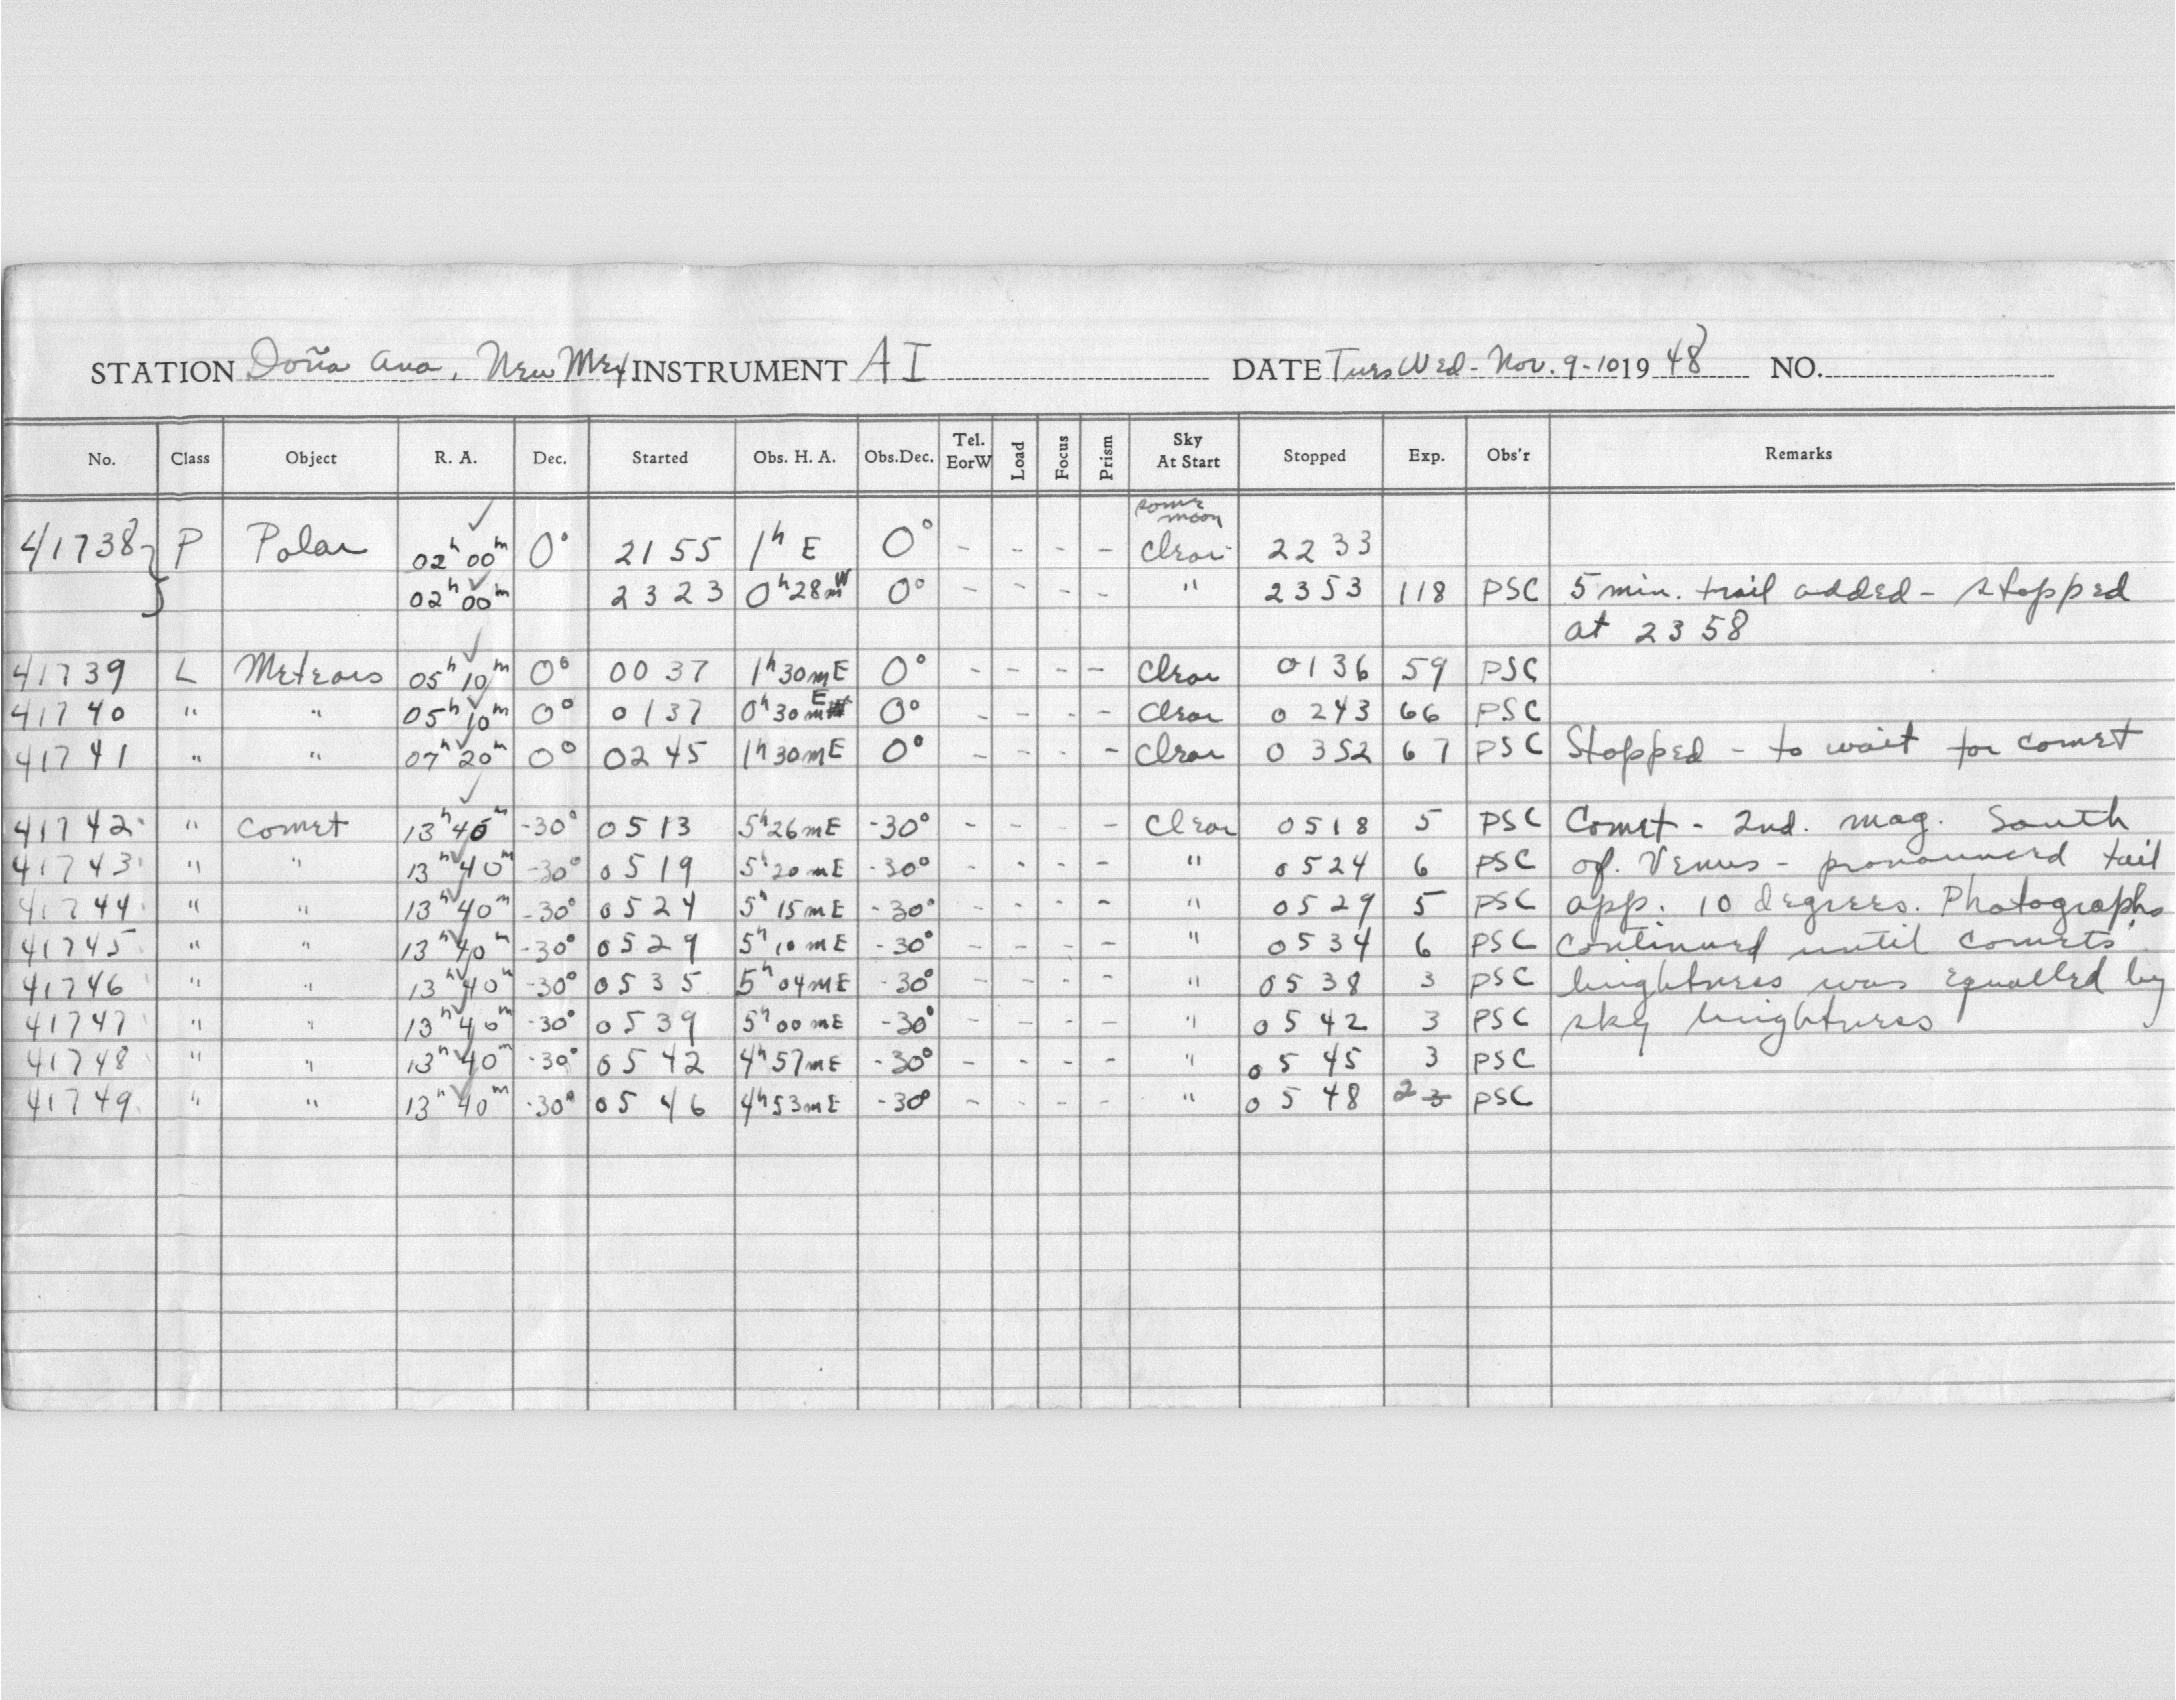 STATION Doña Ana, New Mex INSTRUMENT AI DATE Tues Wed - Nov. 9-10 1948 NO.
No. Class Object R. A. Dec. Started Obs. H. A. Obs.Dec. Tel. EorW Load Focus Prism Sky At Start Stopped Exp. Obs'r Remarks
some moon
41738 P Polar 02h 00m 0° 2155 1h E 0° - - - - Clear 2233
02h 00m 2323 0h 28m W 0° - - - - " 2353 118 PSC 5 min. trail added - stopped
at 2358
41739 L Meteors 05h 10m 0° 0037 1h 30m E 0° - - - - Clear 0136 59 PSC
41740 " " 05h 10m 0° 0137 0h 30m E 0° - - - - Clear 0243 66 PSC
41741 " " 07h 20m 0° 0245 1h 30m E 0° - - - - Clear 0352 67 PSC Stopped - to wait for comet
41742 " Comet 13h 40m -30° 0513 5h 26m E -30° - - - - Clear 0518 5 PSC Comet - 2nd. mag. South
41743 " " 13h 40m -30° 0519 5h 20m E -30° - - - - " 0524 6 PSC of. Venus - pronounced tail
41744 " " 13h 40m -30° 0524 5h 15m E -30° - - - - " 0529 5 PSC app. 10 degrees. Photographs
41745 " " 13h 40m -30° 0529 5h 10m E -30° - - - - " 0534 6 PSC continued until comets'
41746 " " 13h 40m -30° 0535 5h 04m E -30° - - - - " 0538 3 PSC brightness was equalled by
41747 " " 13h 40m -30° 0539 5h 00m E -30° - - - - " 0542 3 PSC sky brightness
41748 " " 13h 40m -30° 0542 4h 57m E -30° - - - - " 0545 3 PSC
41749 " " 13h 40m -30° 0546 4h 53m E -30° - - - - " 0548 2 3 PSC